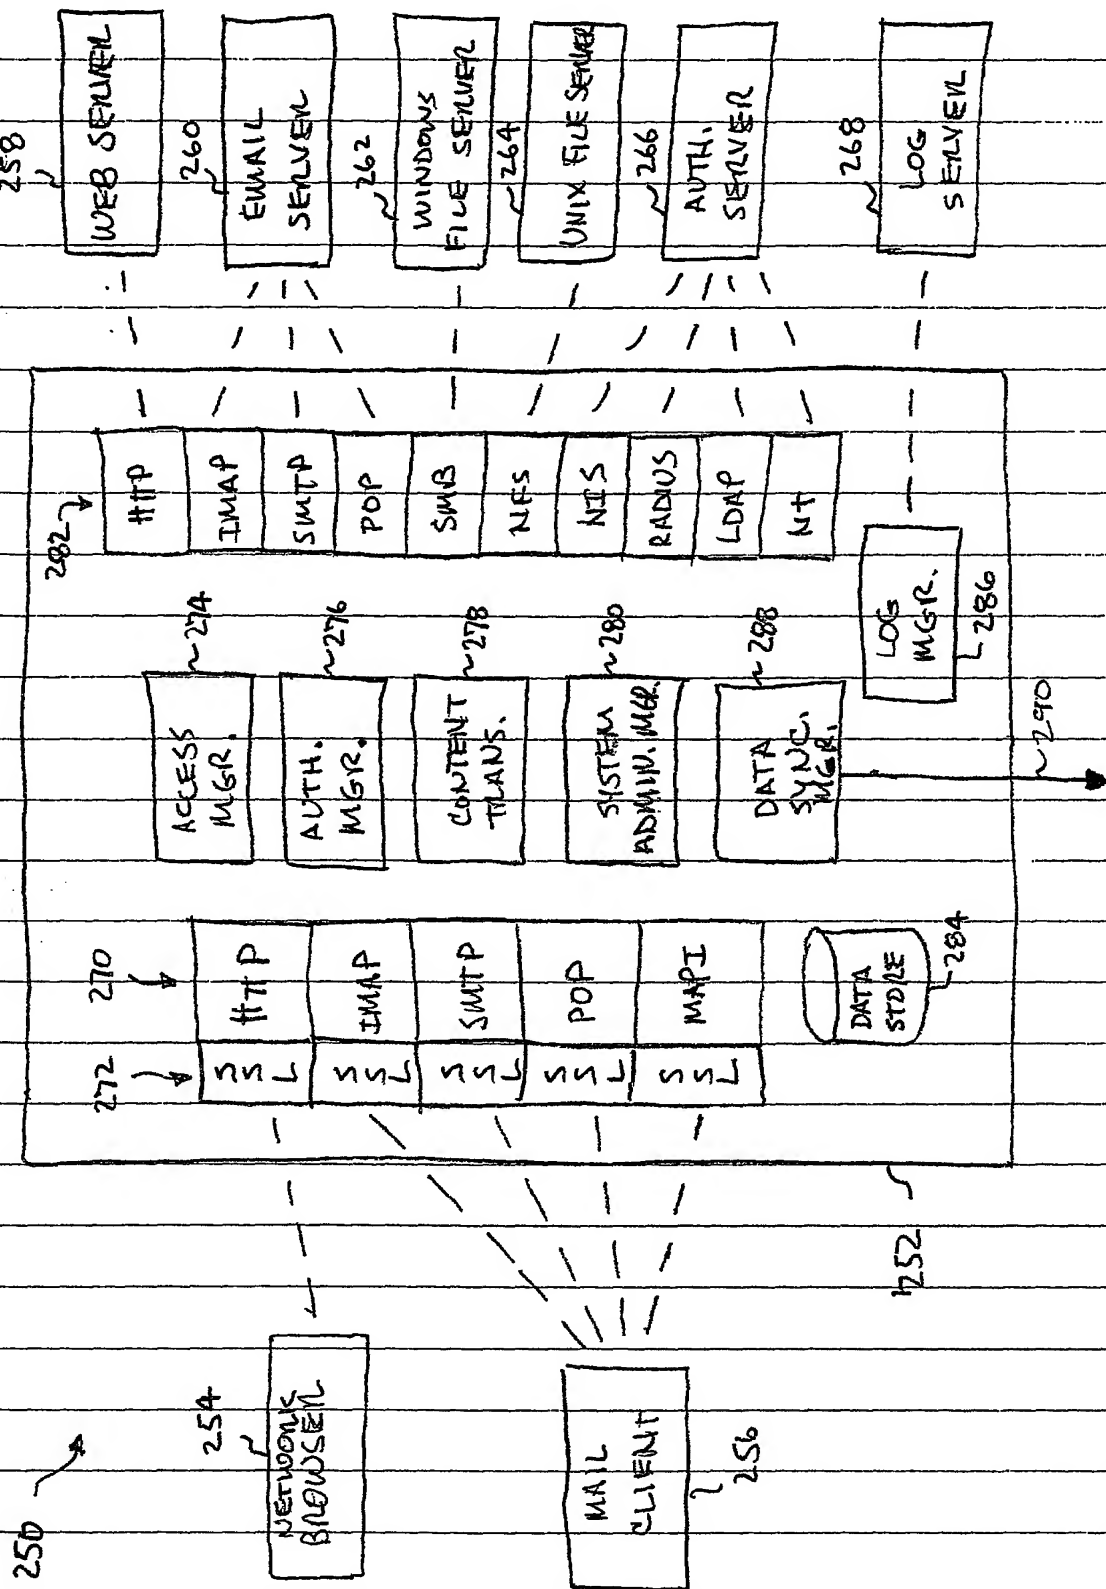 250
254
NETWORK
BROWSER
MAIL
CLIENT
256
252
272
SSL
SSL
SSL
SSL
SSL
270
HTTP
IMAP
SMTP
POP
MAPI
DATA
STORE
284
ACCESS
MGR.
274
AUTH.
MGR.
276
CONTENT
TRANS.
278
SYSTEM
ADMIN. MGR.
280
DATA
SYNC.
MGR.
288
290
LOG
MGR.
286
282
HTTP
IMAP
SMTP
POP
SMB
NFS
NIS
RADIUS
LDAP
NT
258
WEB SERVER
260
EMAIL
SERVER
262
WINDOWS
FILE SERVER
264
UNIX FILE SERVER
266
AUTH.
SERVER
268
LOG
SERVER